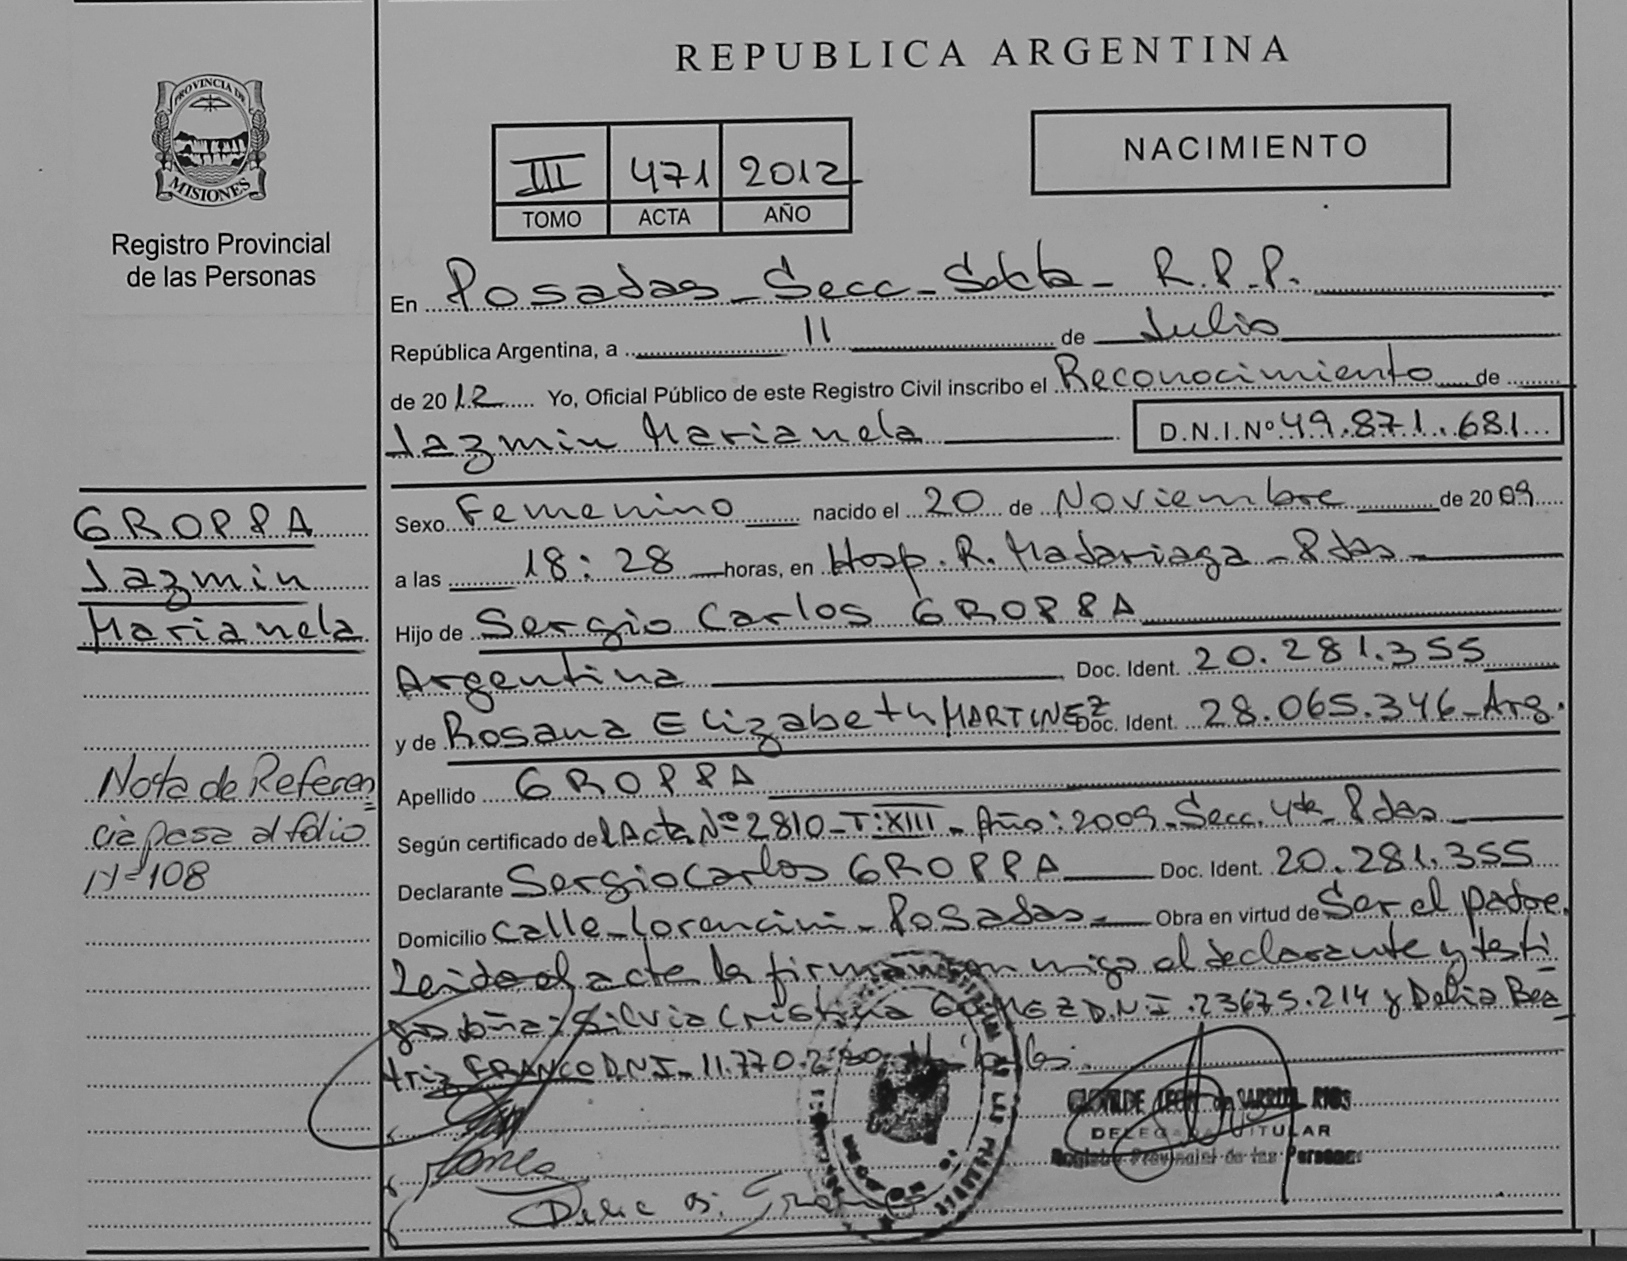 PROVINCIA DE
MISIONES
Registro Provincial
de las Personas
REPUBLICA ARGENTINA
III 471 2012
TOMO ACTA AÑO
NACIMIENTO
En Posadas - Secc - Sexta - R.P.P.
República Argentina, a 11 de Julio
de 2012 Yo, Oficial Público de este Registro Civil inscribo el Reconocimiento de
Jazmin Marianela D.N.I.Nº 49.871.681
GROPPA
Jazmin
Marianela
Sexo Femenino nacido el 20 de Noviembre de 2009
a las 18:28 horas, en Hosp. R. Madariaga - Pdas -
Hijo de Sergio Carlos GROPPA
Argentina Doc. Ident. 20.281.355
y de Rosana Elizabeth MARTINEZ Doc. Ident. 28.065.346 - Arg.
Nota de Referen
cia pasa al folio
Nº 108
Apellido GROPPA
Según certificado de l Acta Nº 2810 - T: XIII - Año: 2009 - Secc. 4ta Pdas
Declarante Sergio Carlos GROPPA Doc. Ident. 20.281.355
Domicilio Calle - Lorencini - Posadas - Obra en virtud de Ser el padre.
Leida el acta la firman conmigo el declarante y testi
gos doña: Silvia Cristina GOMEZ D.N.I. 23675.214 y Delia Bea
triz FRANCO D.N.I - 11.770.2
RIOS
DELEGADA TITULAR
Registro Provincial de las Personas
Delia B. Franco